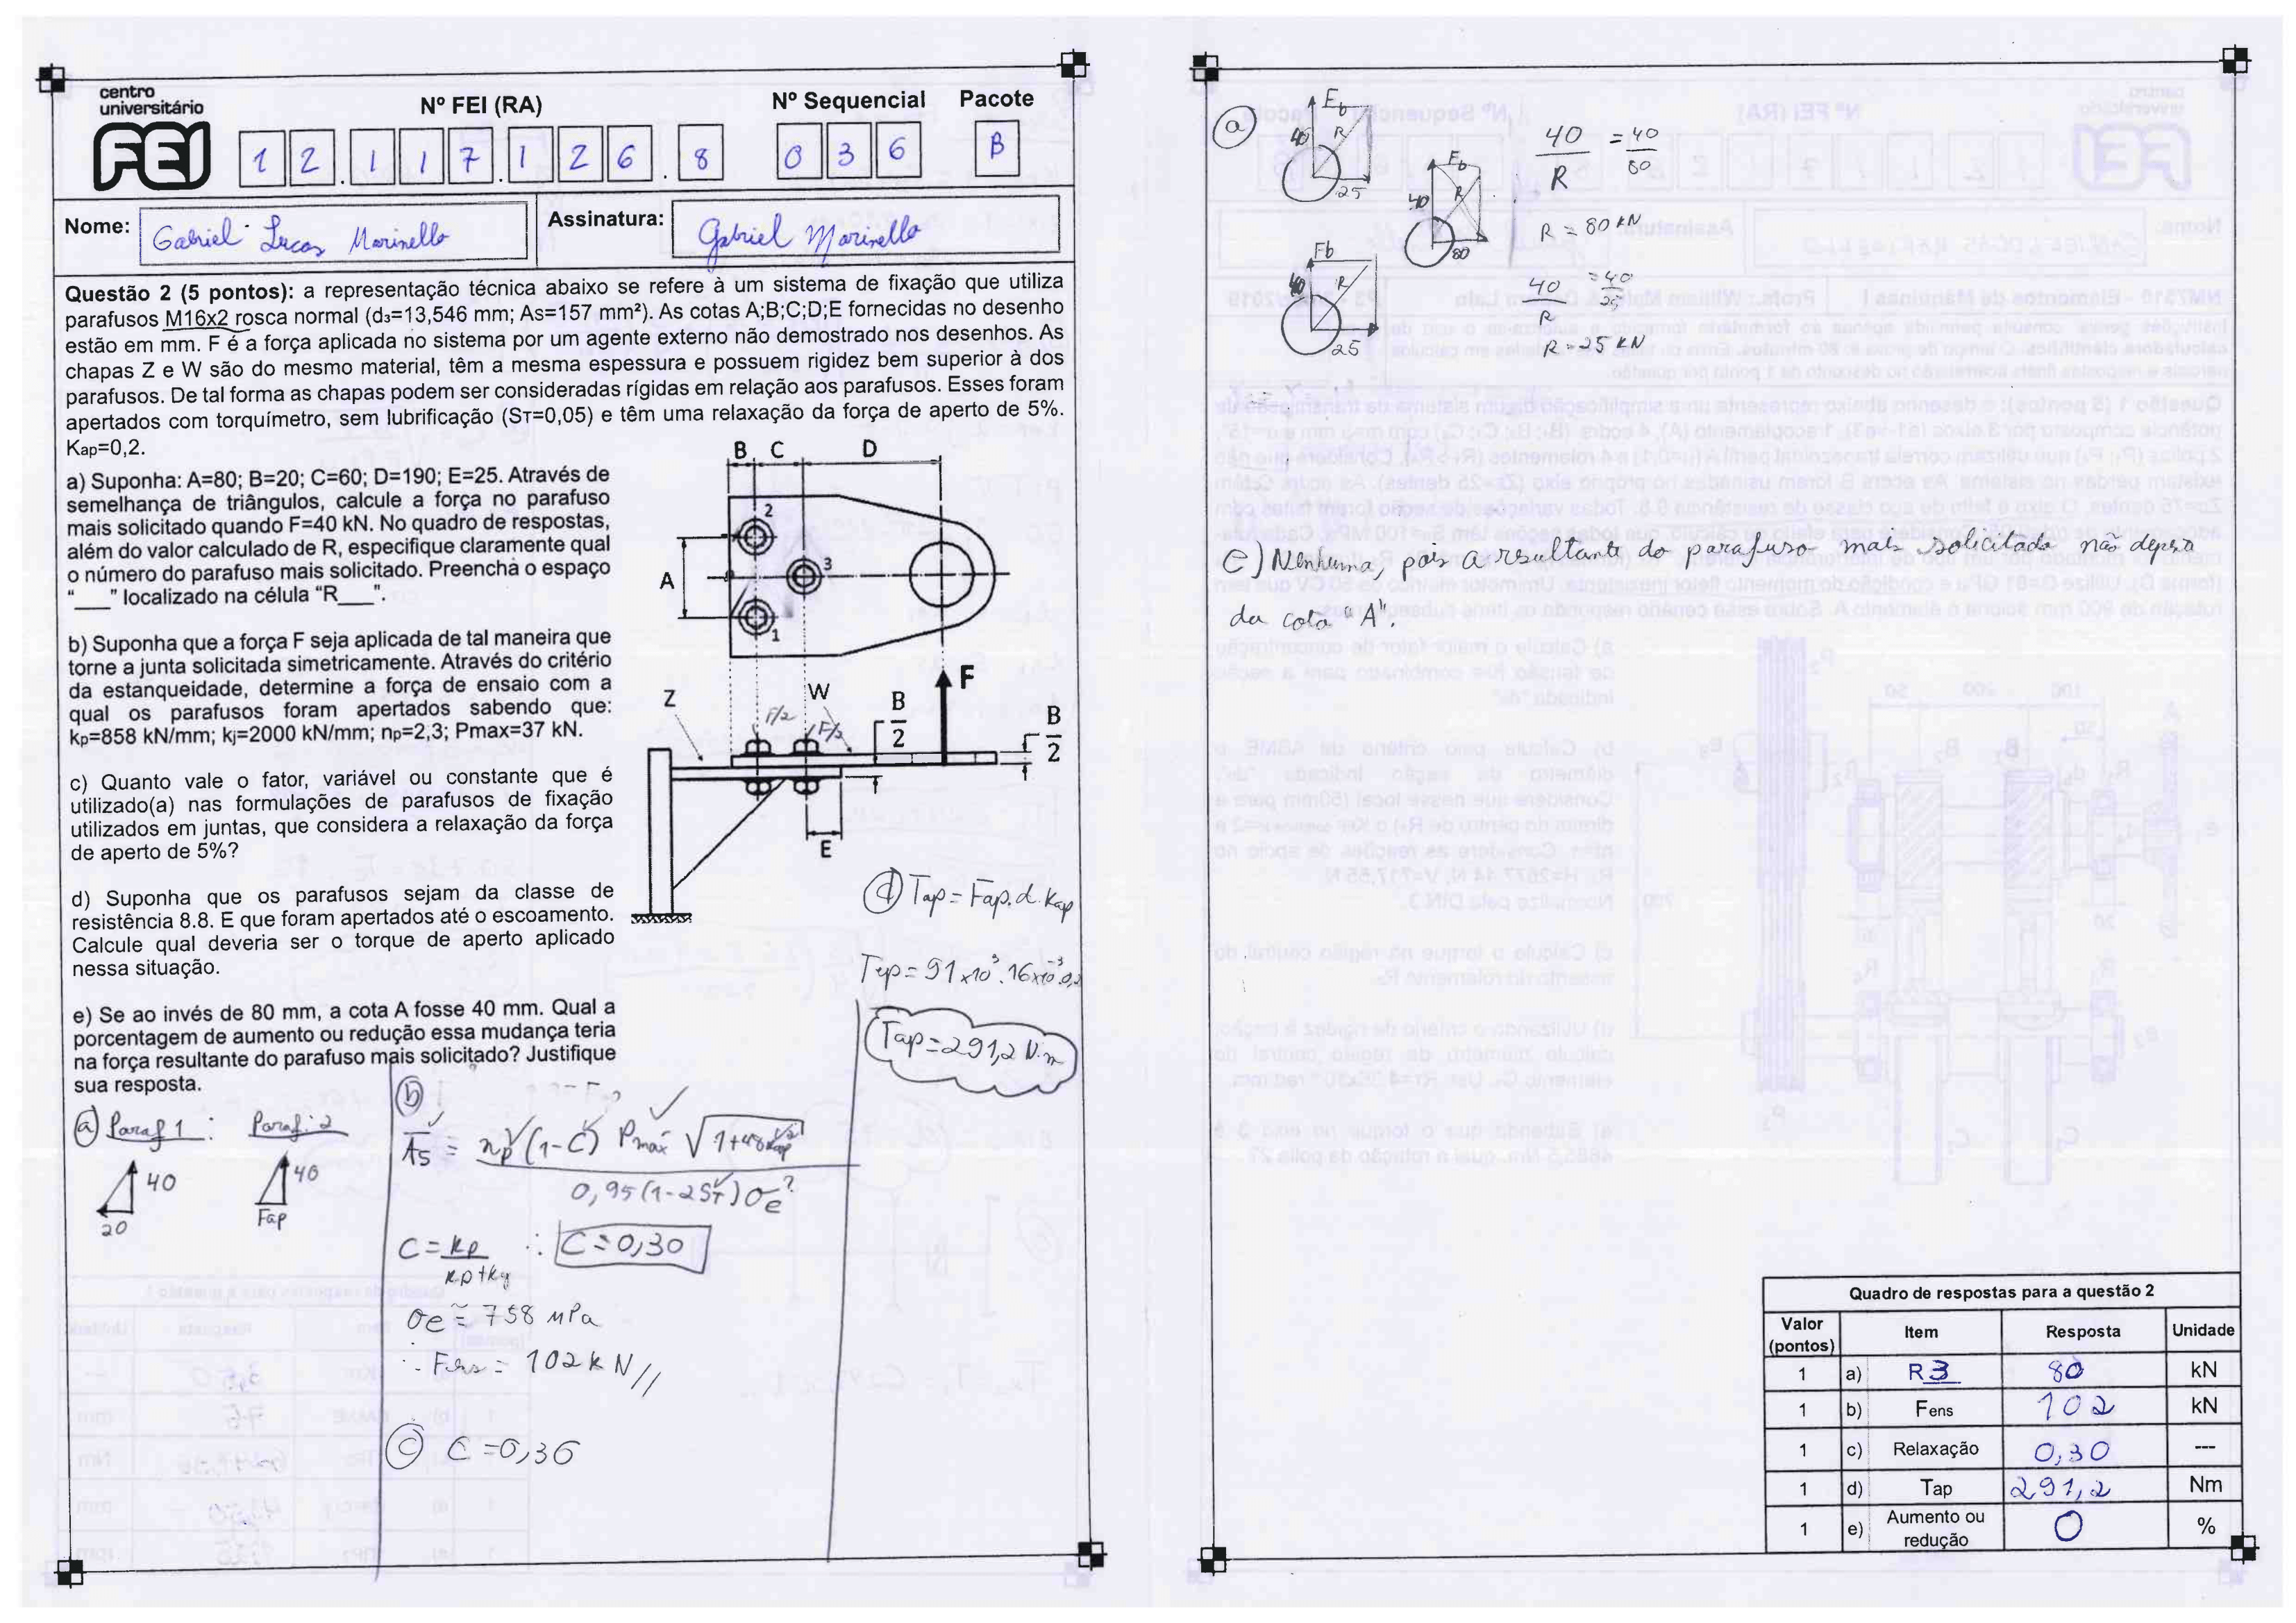 centro
universitário
FEI
Nº FEI (RA)
Nº Sequencial
Pacote
1 2 . 1 1 7 . 1 2 6 . 8
0 3 6
B
Nome: Gabriel Lucas Marinello
Assinatura: Gabriel Marinello
Questão 2 (5 pontos): a representação técnica abaixo se refere à um sistema de fixação que utiliza
parafusos M16x2 rosca normal (d₃=13,546 mm; As=157 mm²). As cotas A;B;C;D;E fornecidas no desenho
estão em mm. F é a força aplicada no sistema por um agente externo não demostrado nos desenhos. As
chapas Z e W são do mesmo material, têm a mesma espessura e possuem rigidez bem superior à dos
parafusos. De tal forma as chapas podem ser consideradas rígidas em relação aos parafusos. Esses foram
apertados com torquímetro, sem lubrificação (Sᴛ=0,05) e têm uma relaxação da força de aperto de 5%.
Kap=0,2.
a) Suponha: A=80; B=20; C=60; D=190; E=25. Através de
semelhança de triângulos, calcule a força no parafuso
mais solicitado quando F=40 kN. No quadro de respostas,
além do valor calculado de R, especifique claramente qual
o número do parafuso mais solicitado. Preencha o espaço
"___" localizado na célula "R___".
b) Suponha que a força F seja aplicada de tal maneira que
torne a junta solicitada simetricamente. Através do critério
da estanqueidade, determine a força de ensaio com a
qual os parafusos foram apertados sabendo que:
kp=858 kN/mm; kj=2000 kN/mm; np=2,3; Pmax=37 kN.
c) Quanto vale o fator, variável ou constante que é
utilizado(a) nas formulações de parafusos de fixação
utilizados em juntas, que considera a relaxação da força
de aperto de 5%?
d) Suponha que os parafusos sejam da classe de
resistência 8.8. E que foram apertados até o escoamento.
Calcule qual deveria ser o torque de aperto aplicado
nessa situação.
e) Se ao invés de 80 mm, a cota A fosse 40 mm. Qual a
porcentagem de aumento ou redução essa mudança teria
na força resultante do parafuso mais solicitado? Justifique
sua resposta.
B C D
2
A
3
1
F
Z
W
F/2
F/2
B/2
B/2
E
(d) Tap = Fap. d. Kap
Tap = 91x10³. 16x10⁻³. 0,2
Tap = 291,2 N.m
(a) Paraf 1 :
Paraf: 2
40
20
40
Fap
(b)
As = np (1-C) Pmax √1+48Kap² / 0,95(1-2ST) σe ?
C = kp / kp+kj ∴ C = 0,30
σe ≅ 758 MPa
∴ Fens = 102 kN //
(c) C = 0,30
(a)
Fb
40
R
25
Fb
40
R
80
Fb
40
R
25
40/R = 40/80
R = 80 kN
40/R = 40/25
R = 25 kN
e) Nenhuma, pois a resultante do parafuso mais solicitado não depende
da cota "A".
Quadro de respostas para a questão 2
Valor (pontos) Item Resposta Unidade
1 a) R 3 80 kN
1 b) Fens 102 kN
1 c) Relaxação 0,30 ---
1 d) Tap 291,2 Nm
1 e) Aumento ou redução 0 %